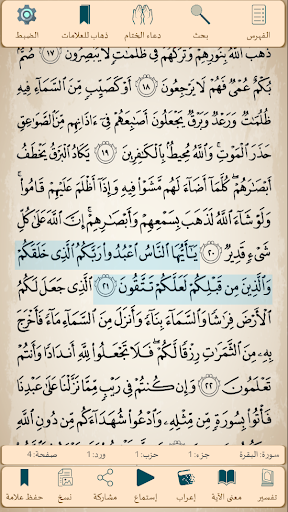 الفهرس بحث دعاء الختام ذهاب للعلامات الضبط
ذَهَبَ ٱللَّهُ بِنُورِهِمْ وَتَرَكَهُمْ فِى ظُلُمَٰتٍ لَّا يُبْصِرُونَ ١٧ صُمٌّۢ
بُكْمٌ عُمْىٌ فَهُمْ لَا يَرْجِعُونَ ١٨ أَوْ كَصَيِّبٍ مِّنَ ٱلسَّمَآءِ فِيهِ
ظُلُمَٰتٌ وَرَعْدٌ وَبَرْقٌ يَجْعَلُونَ أَصَٰبِعَهُمْ فِىٓ ءَاذَانِهِم مِّنَ ٱلصَّوَٰعِقِ
حَذَرَ ٱلْمَوْتِ ۚ وَٱللَّهُ مُحِيطٌۢ بِٱلْكَٰفِرِينَ ١٩ يَكَادُ ٱلْبَرْقُ يَخْطَفُ
أَبْصَٰرَهُمْ ۖ كُلَّمَآ أَضَآءَ لَهُم مَّشَوْا۟ فِيهِ وَإِذَآ أَظْلَمَ عَلَيْهِمْ قَامُوا۟ ۚ
وَلَوْ شَآءَ ٱللَّهُ لَذَهَبَ بِسَمْعِهِمْ وَأَبْصَٰرِهِمْ ۚ إِنَّ ٱللَّهَ عَلَىٰ كُلِّ
شَىْءٍ قَدِيرٌ ٢٠ يَٰٓأَيُّهَا ٱلنَّاسُ ٱعْبُدُوا۟ رَبَّكُمُ ٱلَّذِى خَلَقَكُمْ
وَٱلَّذِينَ مِن قَبْلِكُمْ لَعَلَّكُمْ تَتَّقُونَ ٢١ ٱلَّذِى جَعَلَ لَكُمُ
ٱلْأَرْضَ فِرَٰشًا وَٱلسَّمَآءَ بِنَآءً وَأَنزَلَ مِنَ ٱلسَّمَآءِ مَآءً فَأَخْرَجَ
بِهِۦ مِنَ ٱلثَّمَرَٰتِ رِزْقًا لَّكُمْ ۖ فَلَا تَجْعَلُوا۟ لِلَّهِ أَندَادًا وَأَنتُمْ
تَعْلَمُونَ ٢٢ وَإِن كُنتُمْ فِى رَيْبٍ مِّمَّا نَزَّلْنَا عَلَىٰ عَبْدِنَا
فَأْتُوا۟ بِسُورَةٍ مِّن مِّثْلِهِۦ وَٱدْعُوا۟ شُهَدَآءَكُم مِّن دُونِ ٱللَّهِ
سورة: البقرة جزء: 1 حزب: 1 ورد: 1 صفحة: 4
تفسير معنى الآية إعراب إستماع مشاركة نسخ حفظ علامة